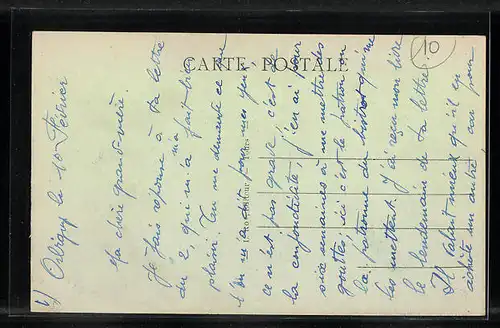 CARTE POSTALE
10
1) Orbigny le 10 Février
Ma chère grand-mère.
Je fais réponse à ta lettre
du 2, qui m'a fait bien
plaisir. Tu me demande ce que
l'on m'avait pour mes yeux
ce n'est pas grave, c'est de
la conjonctivite, j'en ai pour
six semaines à me mettre des
gouttes, ici c'est le patron ou
la patronne du bistrot qui me
les mettent. J'ai reçu mon livre
le lendemain de ta lettre.
Il valait mieux qu'il en
achète un autre, car pour